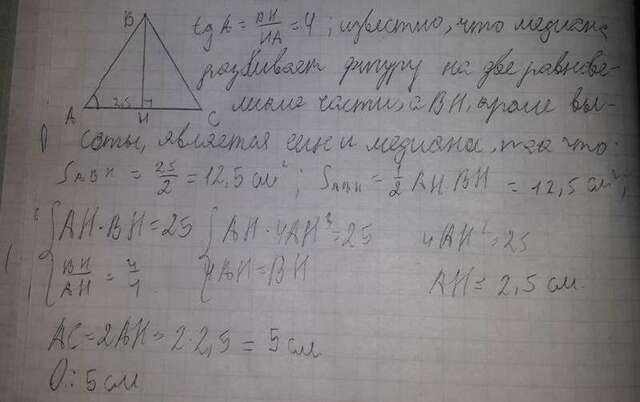 B
A 2,5 H C
tg A = BH/HA = 4; известно, что медиана
разбивает фигуру на две равнове-
ликие части, а BH, кроме вы-
соты, является ещё и медиана, так что
S ABH = 25/2 = 12,5 см²; S ABH = 1/2 AH·BH = 12,5 см²;
{ AH·BH = 25 { AH·4AH = 25 4AH² = 25
{ BH/AH = 4/1 { 4AH = BH AH = 2,5 см
AC = 2AH = 2·2,5 = 5 см
О: 5 см